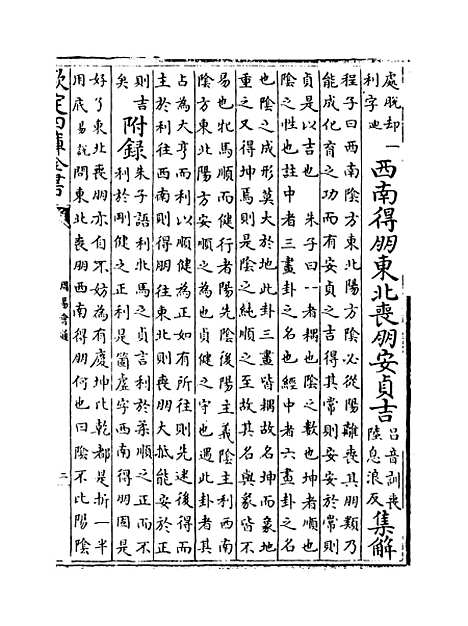 處脫却一利字也
西南得朋東北喪朋安貞吉 呂音訓喪陸息浪反 集解
程子曰西南陰方東北陽方陰必從陽離喪其朋類乃
能成化育之功而有安貞之吉得其常則安安於常則
貞是以吉也 朱子曰--者耦也陰之數也坤者順也
陰之性也註中者三畫卦之名也經中者六畫卦之名
也陰之成形莫大於地此卦三畫皆耦故名坤而象地
重之又得坤焉則是陰之純順之至故其名與象皆不
易也牝馬順而健行者陽先陰後陽主義陰主利西南
陰方東北陽方安順之為也貞健之守也遇此卦者其
占為大亨而利以順健為正如有所往則先迷後得而
主於利往西南則得朋往東北則喪朋大抵能安於正
則吉 附錄 朱子語利牝馬之貞言利於柔順之正而不
矣 利於剛健之正利是箇虛字西南得朋固是
好了東北喪朋亦自不妨為有慶坤比乾都是折一半
用底 易說 問東北喪朋西南得朋何也曰陰不比陽陰
欽定四庫全書
周易會通
二